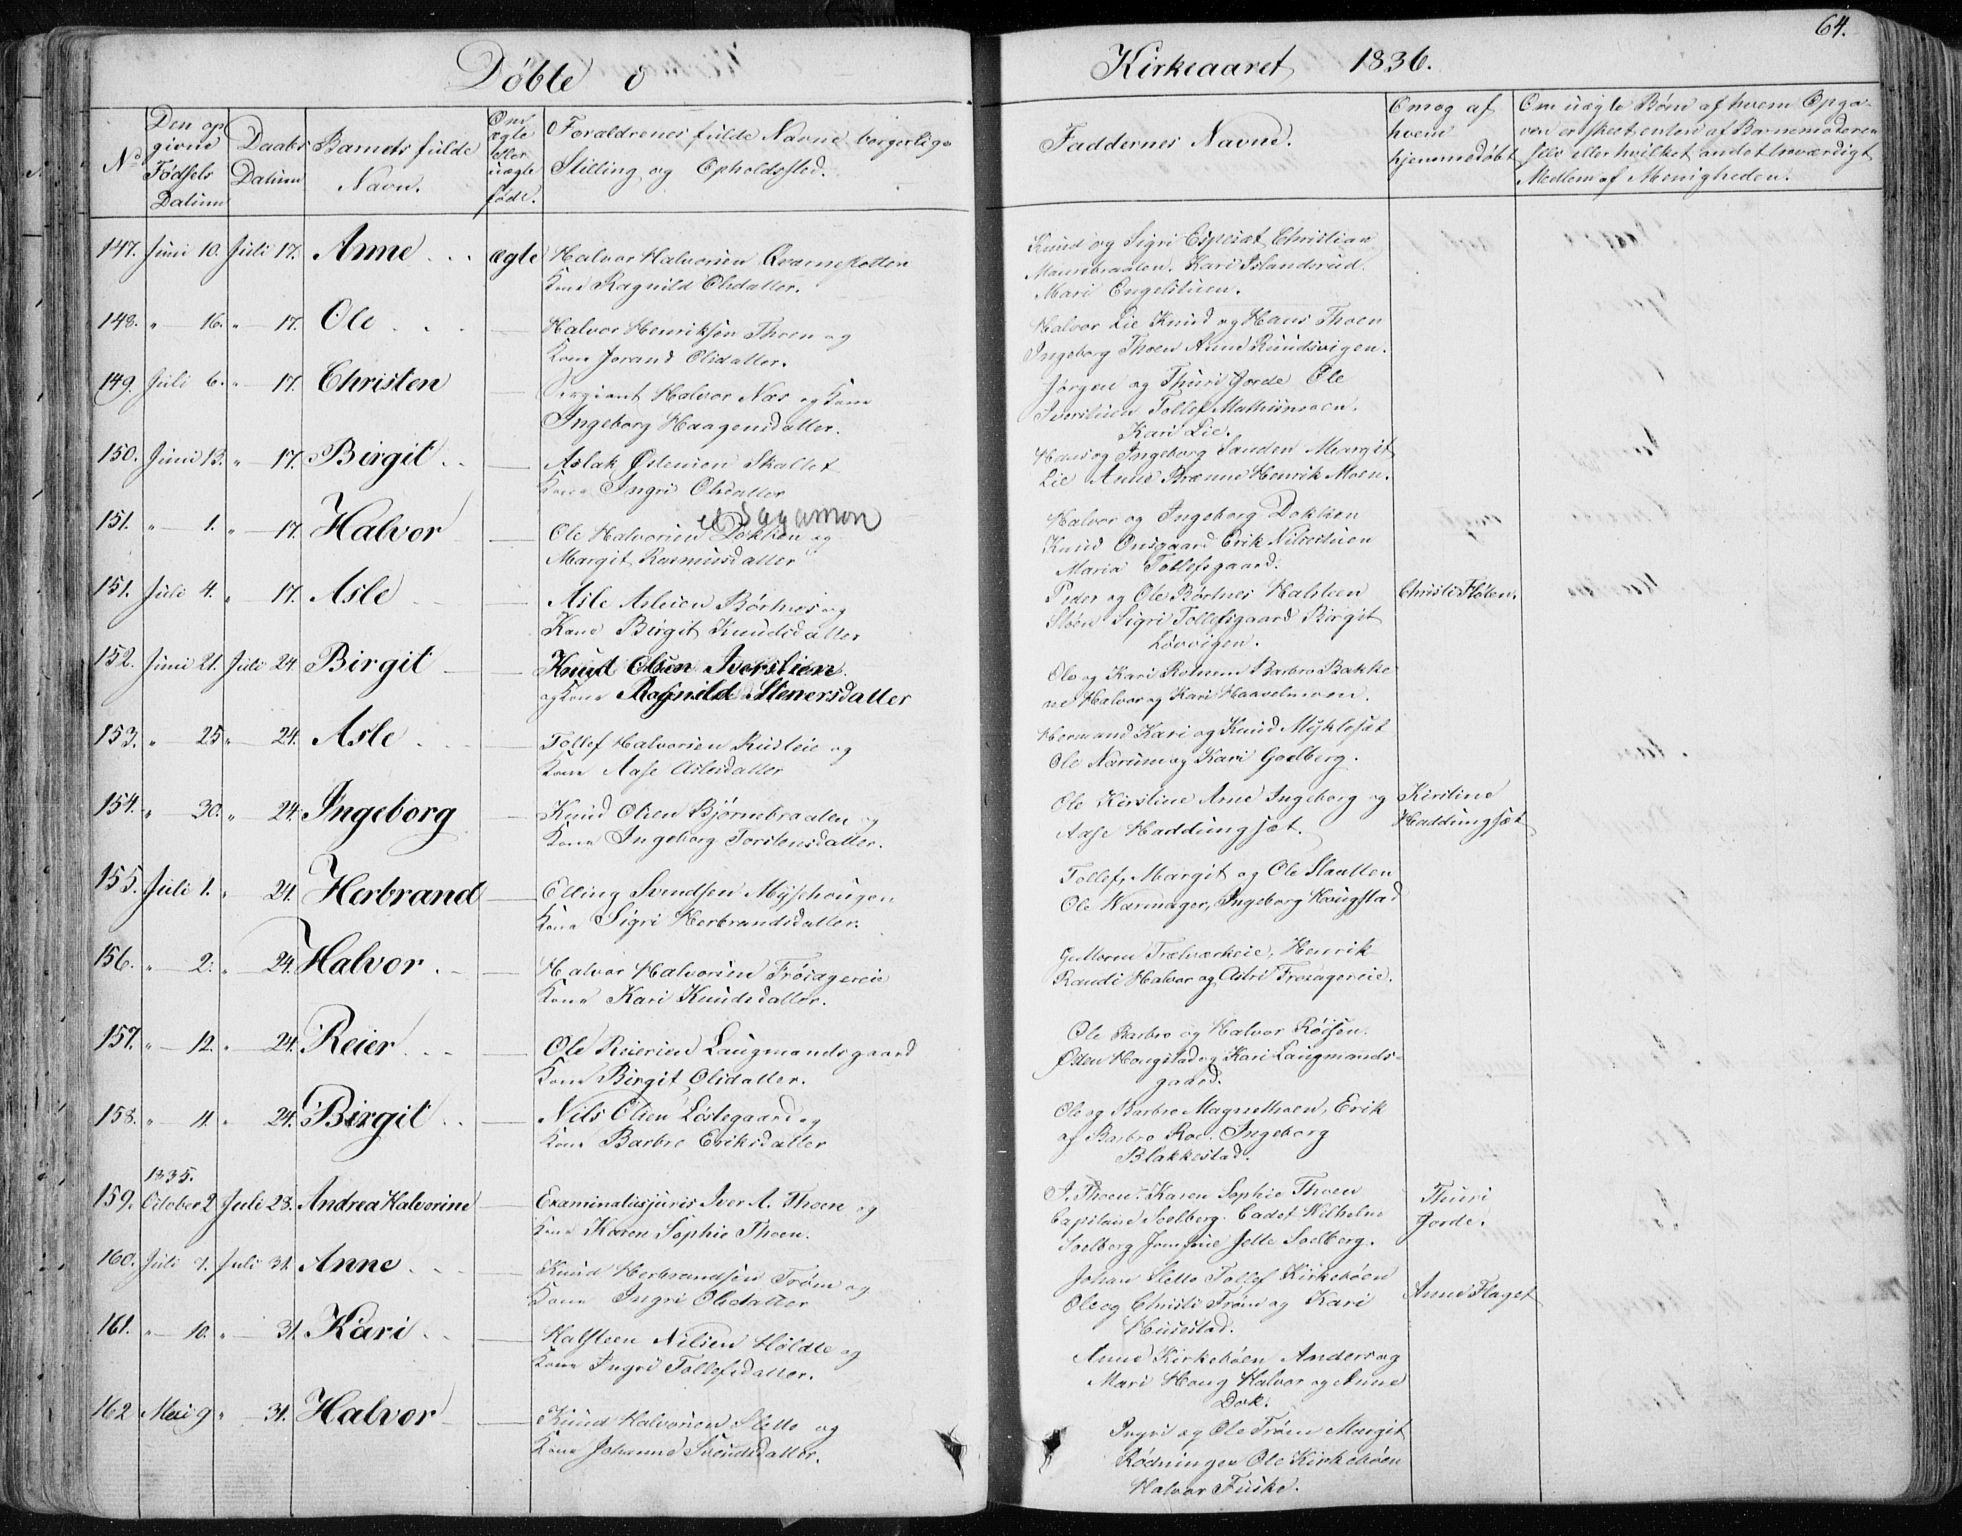 64.
Døbte i Kirkeaaret 1836.
No
Den op
givne
Fødsels
Datum
Daabs
Datum
Barnets fulde
Navn.
Om
ægte
eller
uægte
født.
Forældrenes fulde Navne borgerlige
Stilling og Opholdssted.
Faddernes Navne.
Om og af
hvem
hjemmedøbt
Om uægte Børn af hvem Opga-
ven er skeet enten af Barnemoderen
selv eller hvilket andet troværdigt
Medlem af Menigheden.
147. Juni 10. Juli 17. Anne ægte Halvor Halvorsen
Kone Ragnild Olsdatter.
Knud og Sigri Espeset Christian
Kari Islandsrud.
Mari Engelstuen.
148. " 16. " 17. Ole — Halvor Henriksen Thoen og
Kone Jorand Olsdatter.
Halvor Lie Knud og Hans Thoen
Ingeborg Thoen Anne Ruudsvigen.
149. Juli 6. " 17. Christen — Sergiant Halvor Næs og Kone
Ingeborg Haagensdatter.
Jørgen og Thuri Jorde Ole
Iverstuen Tollef
Kari Lie.
150. Juni 13. " 17. Birgit — Aslak Østensen Skallet
Kone Ingri Olsdatter
Hans og Ingeborg Sanden Margit
Lie Anne Brænne Henrik Moen.
151. " 1. " 17. Halvor — Ole Halvorsen Dokken og
Margit Rasmusdatter
Halvor og Ingeborg Dokken
Knud Onsgaard Erik Nilsestuen
Maria Tollefsgaard.
151. Juli 4. " 17. Asle — Asle Aslesen Børtnes og
Kone Birgit Knudsdatter
Peder og Ole Børtnes Halsteen
Støen Sigri Tollefsgaard Birgit
Løvvigen.
Christi Fløten.
152. Juni 21. Juli 24. Birgit — Knud Olsen Iverslien.
og Kone Ragnild Stenersdatter
Ole og Kari Rotnem Barbro Bakke
ne Halvor og Kari Haavelmoen.
153. " 25 " 24. Asle — Tollef Halvorsen Rusteie og
Kone Aase Aslesdatter
Hermand Kari og Knud Myklesæt
Ole Narum og Kari Goelberg.
154. " 30. " 24. Ingeborg — Knud Olsen Bjørnebraaten og
Kone Ingeborg Torstensdatter.
Ole Kirstine Arne Ingeborg og
Aase Haddungsæt.
Kirstine
Haddungsæt
155. Juli 1. " 24. Herbrand — Elling Svendsen Mysehougen
Kone Sigri Herbrandsdatter.
Tollef, Margit og Ole Slaatten
Ole Wærmager, Ingeborg Hougstad
156. " 2. " 24. Halvor — Halvor Halvorsen Frøsagereie
Kone Kari Knudsdatter.
Guttorm Trælværkeie, Henrik
Randi Halvor og Astri Frosagereie.
157. " 12. " 24. Reier — Ole Reiersen Laugmandsgaard
Kone Birgit Olsdatter.
Ole Barbro og Halvor
Østen Hougstad og Kari Laugmands-
gaard.
158. " 4. " 24. Birgit — Nils Olsen Løstegaard og
Kone Barbro Eriksdatter
Ole og Barbro Magnethoen, Erik
og Barbro Roe. Ingeborg
Blakkestad.
1835.
159. October 2 Juli 28. Andrea Halvorine — Examinatusjuris Iver A. Thoen og
Kone Karen Sophie Thoen.
I. Thoen. Karen Sophie Thoen
Capitaine Soelberg. Cadet Wilhelm
Soelberg Jomfrue Jette Soelberg.
Thuri
Jorde.
160. Juli 9. Juli 31. Anne — Knud Herbrandsen Trøm og
Kone Ingri Olsdatter
Johan Sletto Tollef Kirkebøen
Ole og Christi Trøm og Kari
Husestad.
Anne Flaget
161. " 10. " 31. Kari — Halsteen Nilsen Holdte og
Kone Ingri Tollefsdatter.
Anne Kirkebøen Anders og
Mari Houg Halvor og Anne
Dok.
162 Mai 9 " 31. Halvor — Knud Halvorsen Sletto og
Kone Johanne Svendsdatter.
Ingri og Ole Trøm Margit
Rødningen Ole Kirkebøen
Halvor Fuske.